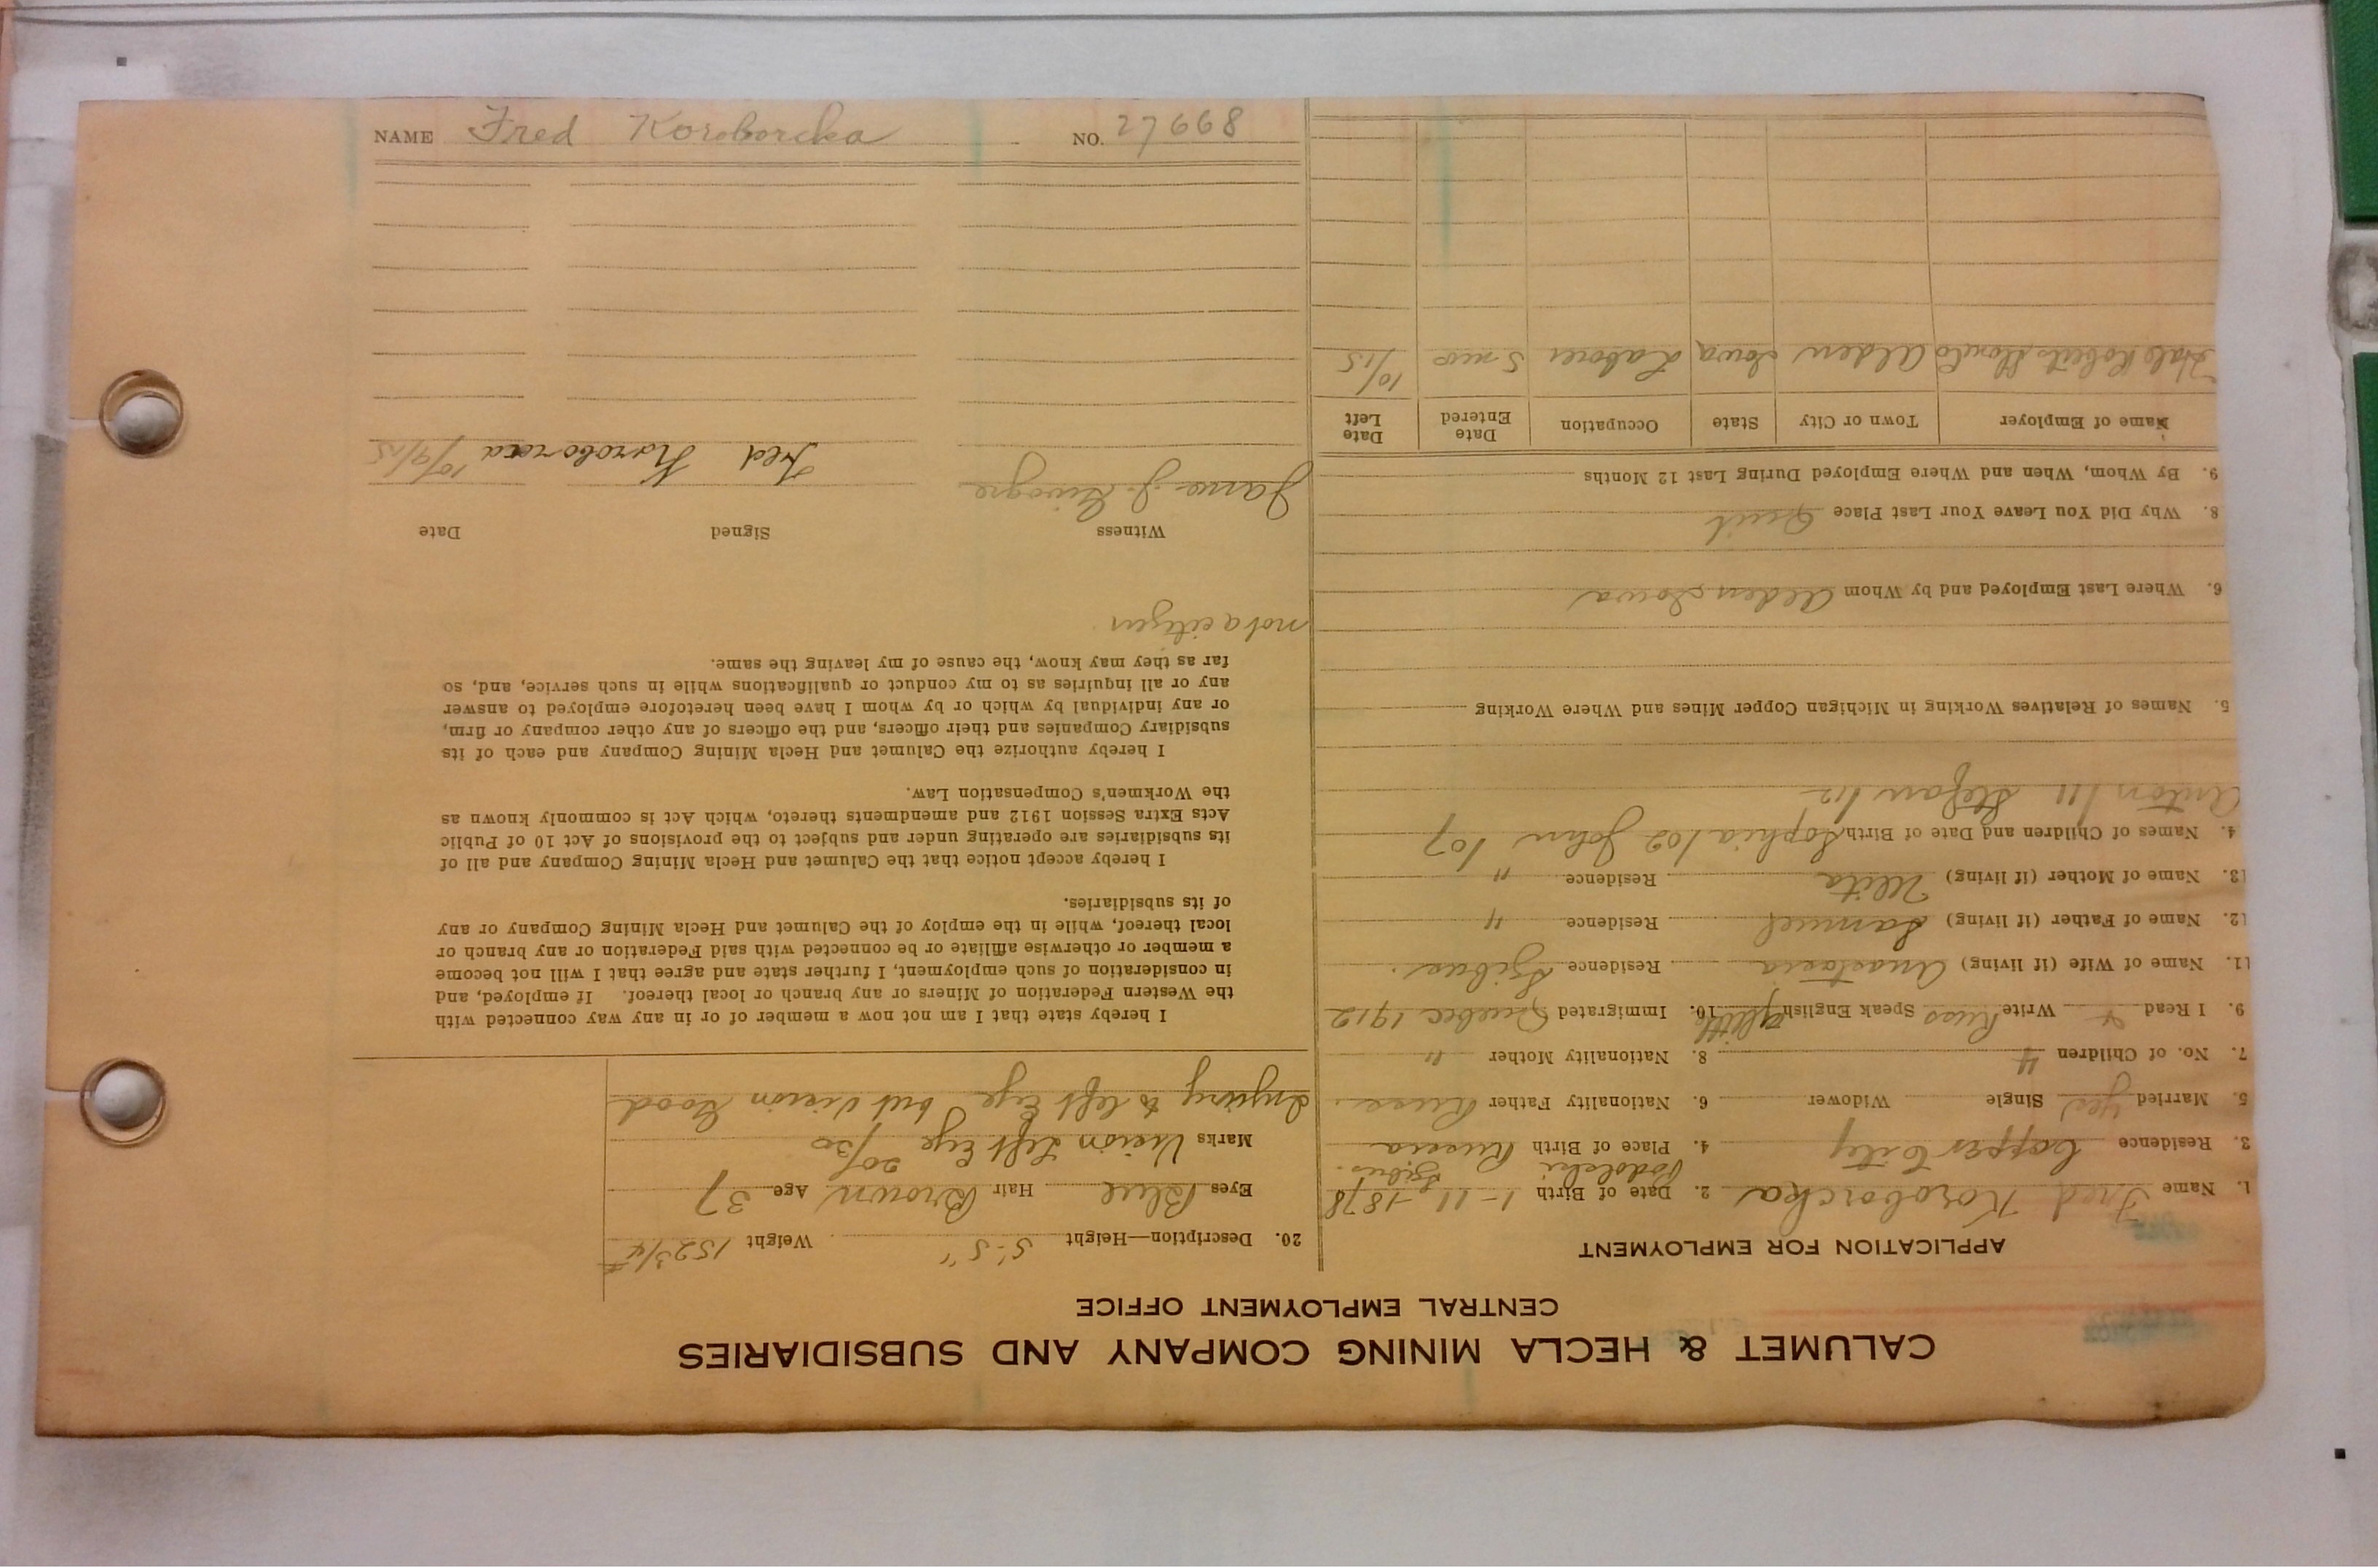 CALUMET & HECLA MINING COMPANY AND SUBSIDIARIES
CENTRAL EMPLOYMENT OFFICE
APPLICATION FOR EMPLOYMENT
1. Name Fred Koroborcka 2. Date of Birth 1-11-1878
3. Residence Copper City 4. Place of Birth Russia
5. Married yes Single Widower 6. Nationality Father Russ.
7. No. of Children 4 8. Nationality Mother "
9. I Read Write Russ Speak English little 10. Immigrated Quebec 1912
11. Name of Wife (if living) Anastasia Residence
12. Name of Father (if living) Samuel Residence "
13. Name of Mother (if living) Residence "
4. Names of Children and Date of Birth Sophia/02 John /07
Anton/11 Stefan/12
5. Names of Relatives Working in Michigan Copper Mines and Where Working
6. Where Last Employed and by Whom Alden Iowa
8. Why Did You Leave Your Last Place Quit
9. By Whom, When and Where Employed During Last 12 Months
Name of Employer Town or City State Occupation Date Entered Date Left
Hale Roberts Alden Iowa Laborer 5 mos 10/15
20. Description—Height 5'-5" Weight 152 3/4 #
Eyes Blue Hair Brown Age 37
Marks Vision Left Eye 20/30
Injury to left Eye but vision Good
I hereby state that I am not now a member of or in any way connected with
the Western Federation of Miners or any branch or local thereof. If employed, and
in consideration of such employment, I further state and agree that I will not become
a member or otherwise affiliate or be connected with said Federation or any branch or
local thereof, while in the employ of the Calumet and Hecla Mining Company or any
of its subsidiaries.
I hereby accept notice that the Calumet and Hecla Mining Company and all of
its subsidiaries are operating under and subject to the provisions of Act 10 of Public
Acts Extra Session 1912 and amendments thereto, which Act is commonly known as
the Workmen's Compensation Law.
I hereby authorize the Calumet and Hecla Mining Company and each of its
subsidiary Companies and their officers, and the officers of any other company or firm,
or any individual by which or by whom I have been heretofore employed to answer
any or all inquiries as to my conduct or qualifications while in such service, and, so
far as they may know, the cause of my leaving the same.
not a citizen
Witness Signed Date
James J. Fred Koroboroca 10/9/15
NAME Fred Koroborcka NO. 27668